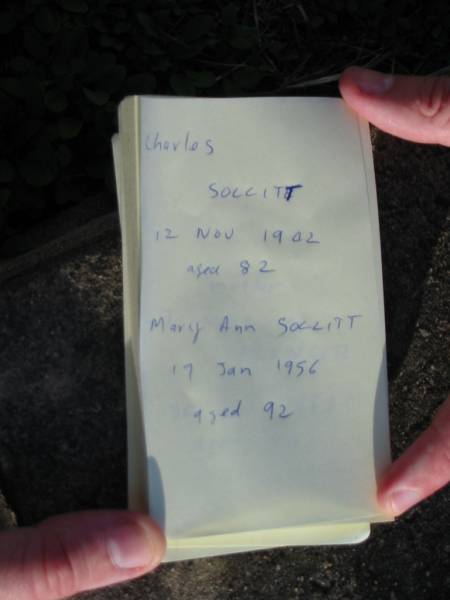 Charles
SOLLITT
12 Nov 1902
aged 82
Mary Ann SOLLITT
17 Jan 1956
aged 92